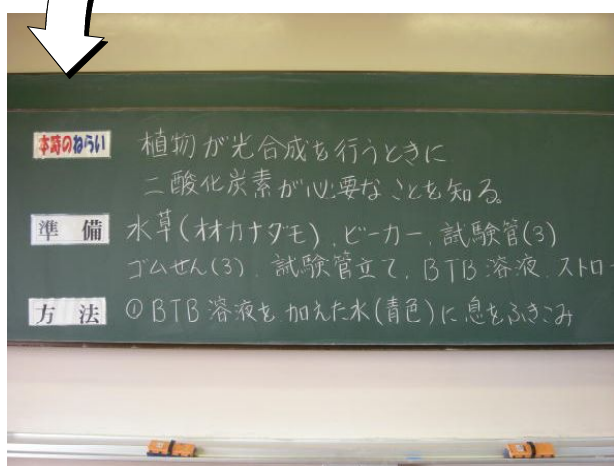 本時のねらい 植物が光合成を行うときに
二酸化炭素が必要なことを知る。
準備 水草(オオカナダモ)、ビーカー、試験管(3)
ゴムせん(3)、試験管立て、BTB溶液、ストロー
方法 ①BTB溶液を加えた水(青色)に息をふきこみ